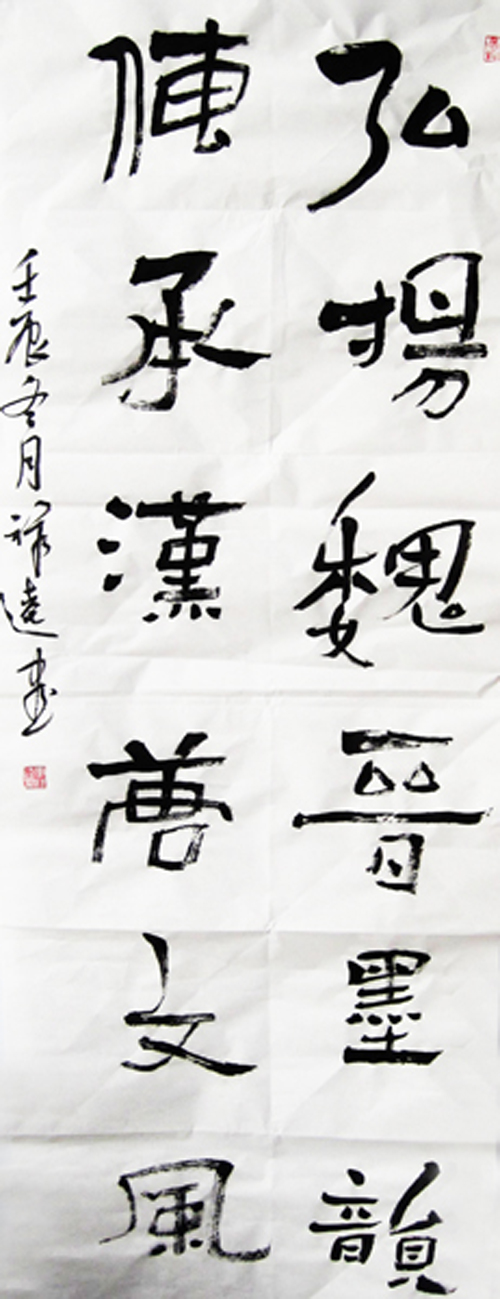 弘揚魏晉墨韻
傳承漢唐文風
壬辰冬月祥達書